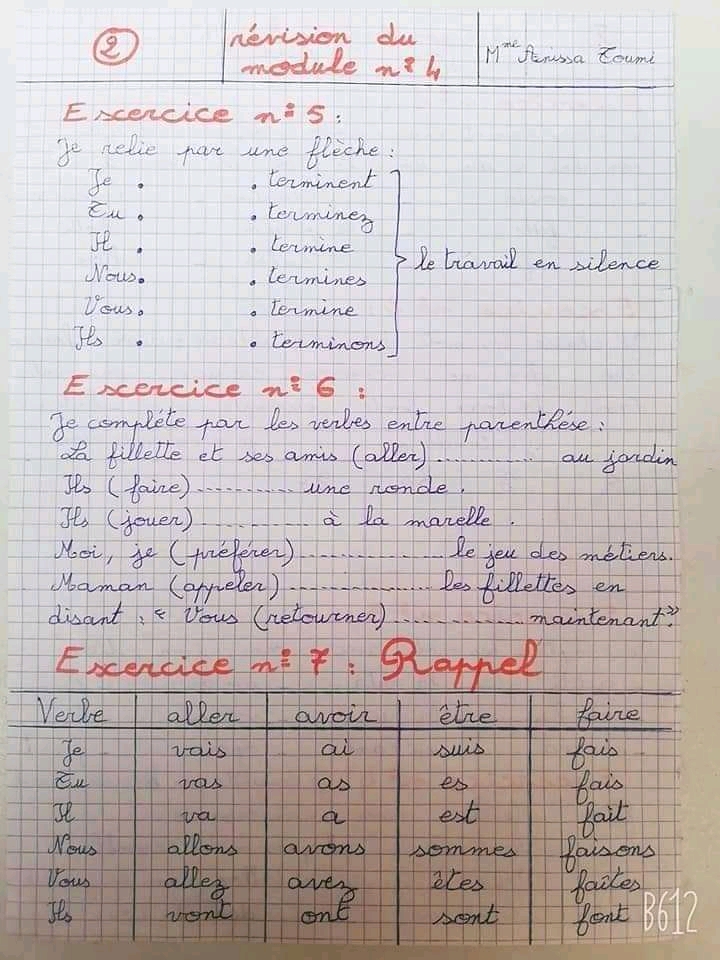 2
révision du
module n° 4
Mme Anissa Toumi
Exercice n° 5 :
Je relie par une flèche :
Je . . terminent
Tu . . terminez
Il . . termine
Nous. . termines
Vous. . termine
Ils . . terminons
le travail en silence
Exercice n° 6 :
Je compléte par les verbes entre parenthése :
La fillette et ses amis (aller) ............ au jardin
Ils (faire) ............ une ronde .
Ils (jouer) ............ à la marelle .
Moi, je (préférer) ............... le jeu des métiers.
Maman (appeler) ............... les fillettes en
disant : « Vous (retourner) ............... maintenant ? »
Exercice n° 7 : Rappel
Verbe aller avoir être faire
Je vais ai suis fais
Tu vas as es fais
Il va a est fait
Nous allons avons sommes faisons
Vous allez avez êtes faites
Ils vont ont sont font
B612